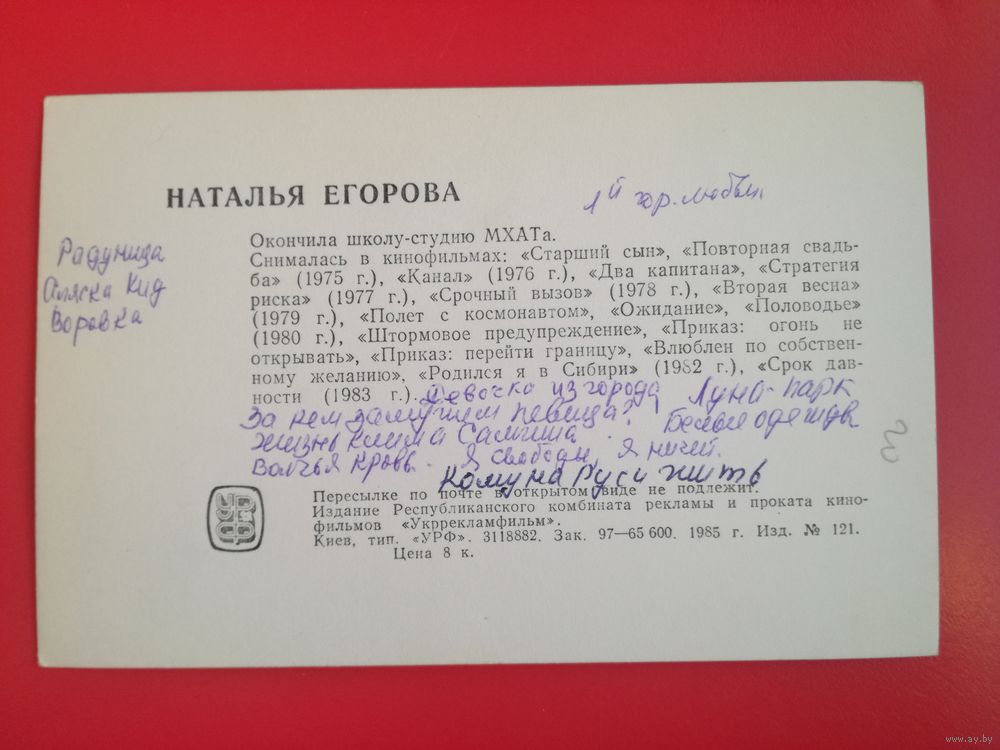 НАТАЛЬЯ ЕГОРОВА
1й гор. любви.
Радуница
Аляска Кид
Воровка
Окончила школу-студию МХАТа.
Снималась в кинофильмах: «Старший сын», «Повторная свадь-
ба» (1975 г.), «Канал» (1976 г.), «Два капитана», «Стратегия
риска» (1977 г.), «Срочный вызов» (1978 г.), «Вторая весна»
(1979 г.), «Полет с космонавтом», «Ожидание», «Половодье»
(1980 г.), «Штормовое предупреждение», «Приказ: огонь не
открывать», «Приказ: перейти границу», «Влюблен по собствен-
ному желанию», «Родился я в Сибири» (1982 г.), «Срок дав-
ности (1983 г.). Девочка из города Луна-парк
За кем замужем певица? Белые одежды
Жизнь Клима Самгина
Волчья кровь. Я свободен, я ничей.
Кому на Руси жить
Пересылке по почте в открытом виде не подлежит.
Издание Республиканского комбината рекламы и проката кино-
фильмов «Укррекламфильм».
Киев, тип. «УРФ». 3118882. Зак. 97—65 600. 1985 г. Изд. № 121.
Цена 8 к.
www.ay.by